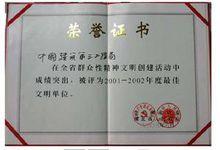 荣誉证书
在全省群众性精神文明创建活动中
成绩突出，被评为2001-2002年度最佳
文明单位。